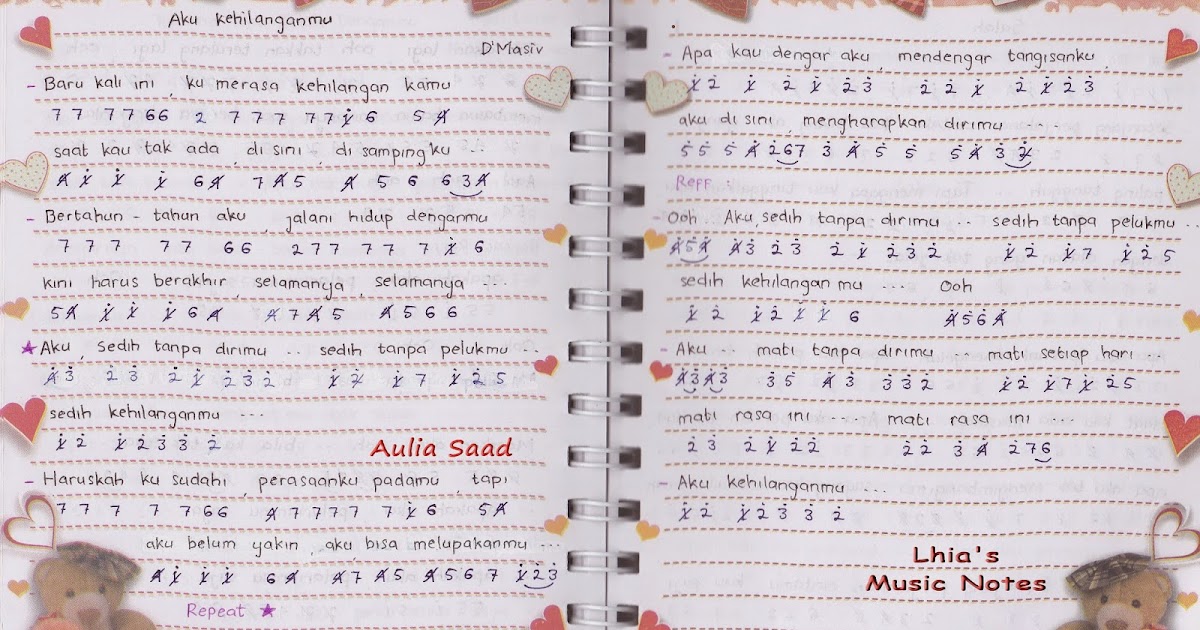 Aku kehilanganmu
D'Masiv
- Baru kali ini , ku merasa kehilangan kamu
7 7 7 7 6 6 2 7 7 7 7 7 1̸̇ 6 5 4̸
saat kau tak ada , di sini , di sampingku ...
4̸ 1̸̇ 1̸̇ 1̸̇ 6 4̸ 7 4̸ 5 4̸ 5 6 6 3 4̸
- Bertahun - tahun aku , jalani hidup denganmu
7 7 7 7 7 6 6 2 7 7 7 7 7 1̸̇ 6
kini harus berakhir , selamanya , selamanya ...
5 4̸ 1̸̇ 1̸̇ 1̸̇ 6 4̸ 4̸ 7 4̸ 5 4̸ 5 6 6
★ Aku , sedih tanpa dirimu ... sedih tanpa pelukmu ...
4̸̇ 3̇ 2̇ 3̇ 2̇ 1̸̇ 2̇ 3̇ 2̇ 1̸̇ 2̸̇ 1̸̇ 7 1̸̇ 2̇ 5
sedih kehilanganmu ...
1̸̇ 2̇ 1̸̇ 2̇ 3̇ 3̇ 2̇
Aulia Saad
- Haruskah ku sudahi , perasaanku padamu , tapi
7 7 7 7 7 6 6 4̸ 7 7 7 7 7 1̸̇ 6 5 4̸
aku belum yakin , aku bisa melupakanmu ...
4̸ 1̸̇ 1̸̇ 1̸̇ 6 4̸ 4̸ 7 4̸ 5 4̸ 5 6 7 1̸̇ 2̇ 3̇
Repeat ★
- Apa kau dengar aku mendengar tangisanku ,
1̸̇ 2̇ 1̸̇ 2̇ 1̸̇ 2̇ 3̇ 2̇ 2̇ 1̸̇ 2̇ 1̸̇ 2̇ 3̇
aku di sini , mengharapkan dirimu ...
5̇ 5̇ 5̇ 4̸̇ 2̇ 6 7 3̇ 4̸̇ 5̇ 5̇ 5̇ 4̸̇ 3̇ 2̸̇
Reff :
- Ooh .. Aku , sedih tanpa dirimu ... sedih tanpa pelukmu ...
4̸̇ 5̇ 4̸̇ 4̸̇ 3̇ 2̇ 3̇ 2̇ 1̸̇ 2̇ 3̇ 2̇ 1̸̇ 2̇ 1̸̇ 7 1̸̇ 2̇ 5
sedih kehilangan mu ... Ooh
1̸̇ 2̇ 1̸̇ 2̇ 1̸̇ 1̸̇ 6 4̸ 5 6 4̸
- Aku ... mati tanpa dirimu ... mati setiap hari ...
4̸̇ 3̇ 4̸̇ 3̇ 3̇ 5̇ 4̸̇ 3̇ 3̇ 3̇ 2̇ 1̸̇ 2̇ 1̸̇ 7 1̸̇ 2̇ 5
mati rasa ini .... mati rasa ini ...
2̇ 3̇ 2̇ 1̸̇ 2̇ 2̇ 2̇ 2̇ 3̇ 4̸̇ 2̇ 7 6
- Aku kehilanganmu ...
1̸̇ 2̇ 1̸̇ 2̇ 3̇ 3̇ 2̇
Lhia's
Music Notes